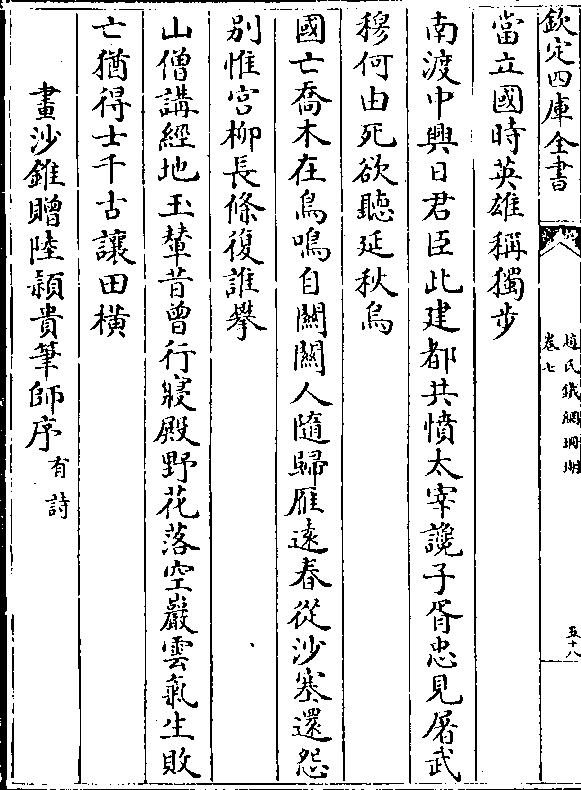 欽定四庫全書
趙氏鐵網珊瑚
卷七
五十八
當立國時英雄稱獨步
南渡中興日君臣此建都共憤太宰讒子胥忠見屠武
穆何由死欲聽延秋烏
國亡喬木在鳥鳴自關關人隨歸雁遠春從沙塞還怨
別惟宮柳長條復誰攀
山僧講經地玉輦昔曾行寢殿野花落空巖雲氣生敗
亡猶得士千古讓田橫
畫沙錐贈陸頴貴筆師序有詩